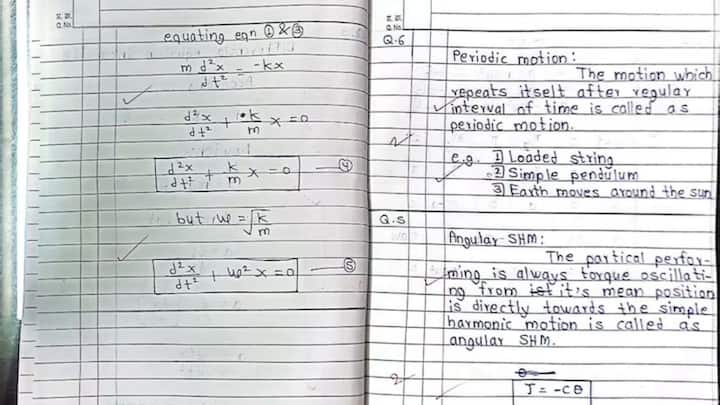 equating eqn ① & ③
m d²x/dt² = -kx
d²x/dt² + k/m x = 0
d²x/dt² + k/m x = 0 — ④
but, ω = √k/m
d²x/dt² + ω² x = 0 — ⑤
Q.No.
Q.6
Periodic motion:
The motion which
repeats itself after regular
interval of time is called as
periodic motion.
2
e.g. 1] Loaded string
2] Simple pendulum
3] Earth moves around the sun
Q.5
Angular SHM:
The partical perfor-
ming is always torque oscillati-
ng from it's mean position
is directly towards the simple
harmonic motion is called as
angular SHM.
2
θ
τ = -cθ